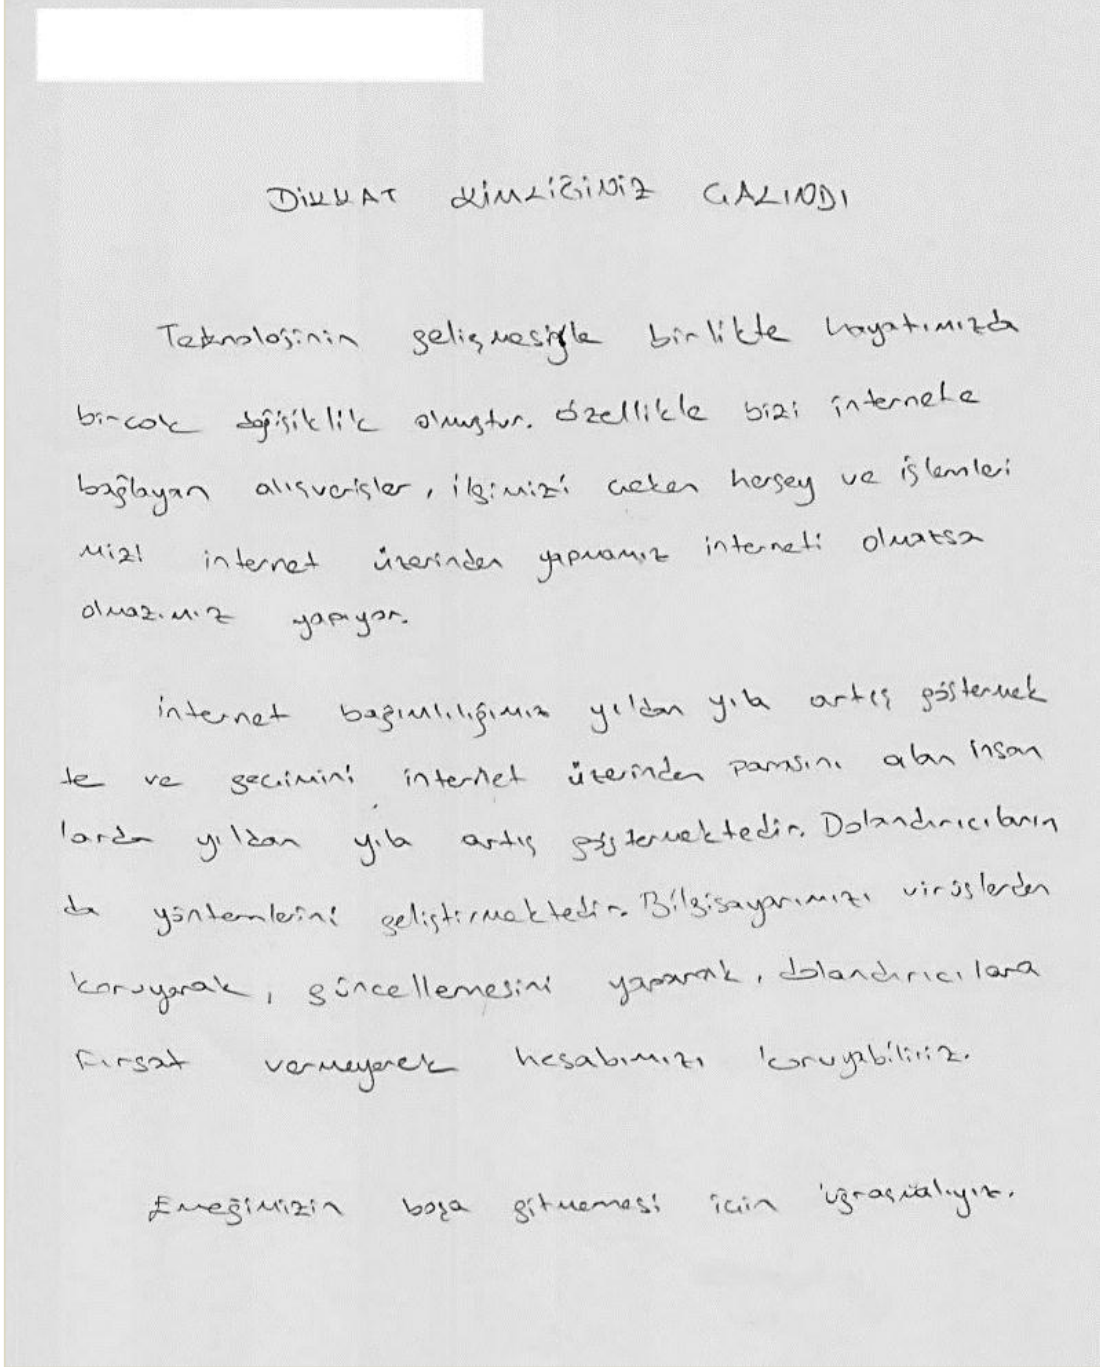 DİKKAT KİMLİĞİNİZ ÇALINDI
Teknolojinin gelişmesiyle birlikte hayatımızda
birçok değişiklik olmuştur. Özellikle bizi internete
bağlayan alışverişler, ilgimizi çeken herşey ve işlemleri
mizi internet üzerinden yapmamız interneti olmazsa
olmazımız yapıyor.
internet bağımlılığımız yıldan yıla artış göstermek
te ve geçimini internet üzerinden parasını alan insan
larda yıldan yıla artış göstermektedir. Dolandırıcıların
da yöntemlerini geliştirmektedir. Bilgisayarımızı virüslerden
koruyarak, güncellemesini yaparak, dolandırıcılara
fırsat vermeyerek hesabımızı koruyabiliriz.
Emeğimizin boşa gitmemesi için uğraşmalıyız.